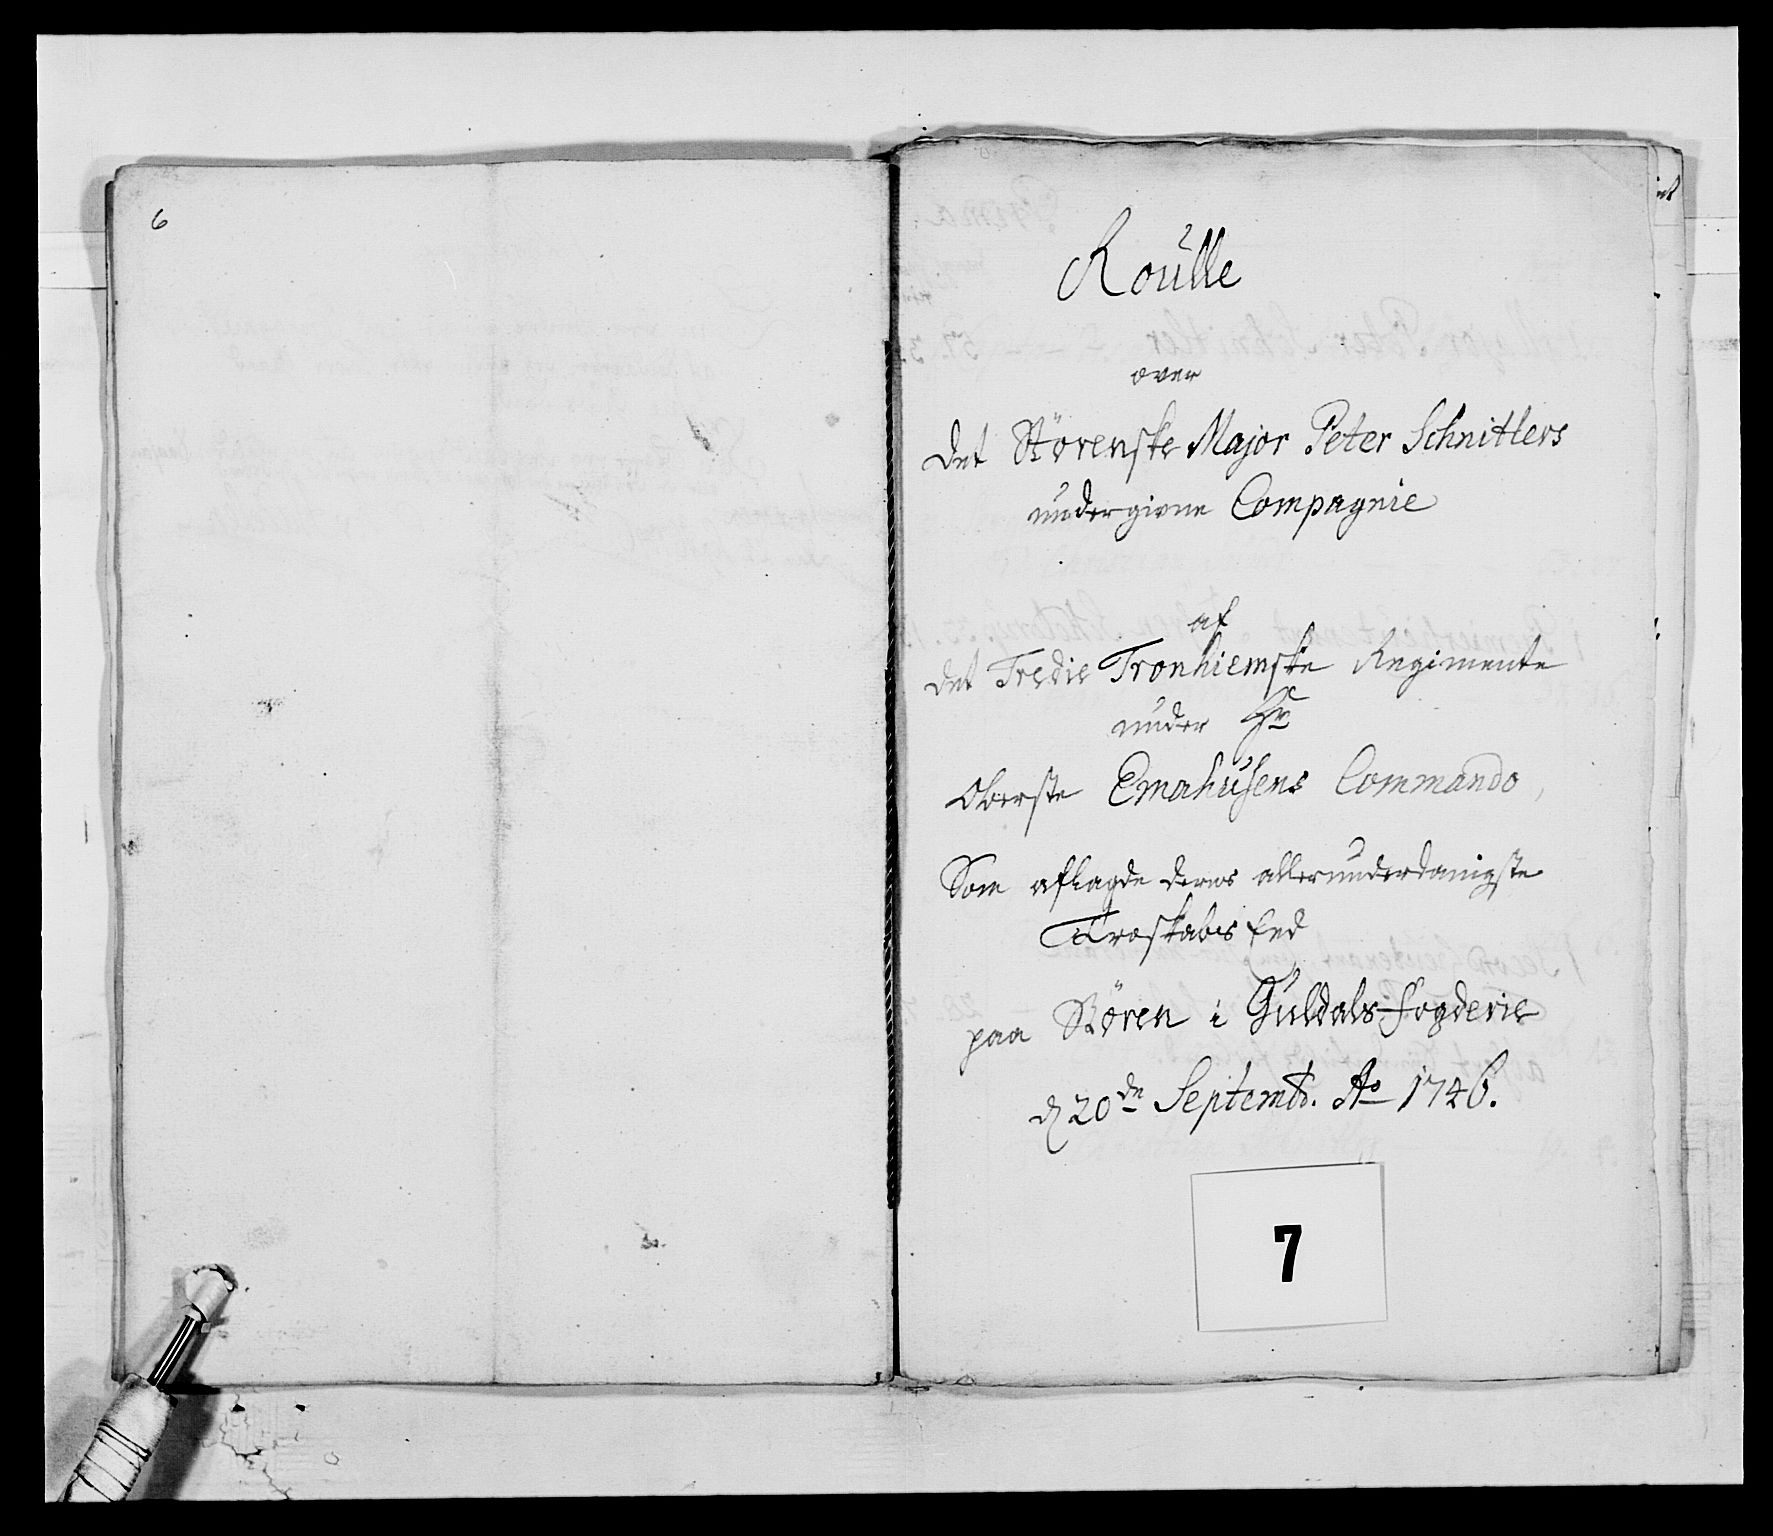 6
Roulle
over
det Störenske Major Peter Schnitlers
undergivne Compagnie
af
det Tredie Tronhiemske Regimente
under Hr
Oberste Emahusens Commando,
Som aflagde deres allerunderdanigste
Troskabs Eed
paa Stören i Guldals-fogderie
d 20de Septembr. Ao 1746.
7